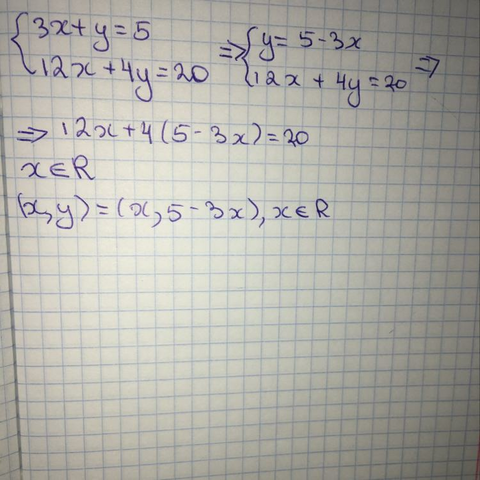 {3x+y=5 ⇒ {y=5-3x ⇒
{12x+4y=20 {12x+4y=20
⇒ 12x+4(5-3x)=20
x∈R
(x,y)=(x,5-3x),x∈R